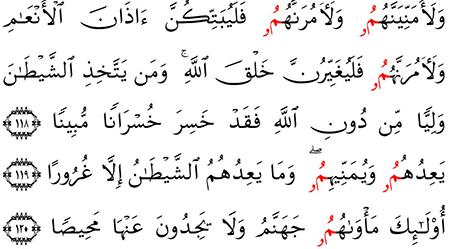 وَلَأُمَنِّيَنَّهُمُۥ وَلَأٓمُرَنَّهُمُۥ فَلَيُبَتِّكُنَّ ءَاذَانَ ٱلۡأَنۡعَٰمِ
وَلَأٓمُرَنَّهُمُۥ فَلَيُغَيِّرُنَّ خَلۡقَ ٱللَّهِۚ وَمَن يَتَّخِذِ ٱلشَّيۡطَٰنَ
وَلِيّٗا مِّن دُونِ ٱللَّهِ فَقَدۡ خَسِرَ خُسۡرَانٗا مُّبِينٗا ١١٨
يَعِدُهُمُۥ وَيُمَنِّيهِمُۥۖ وَمَا يَعِدُهُمُ ٱلشَّيۡطَٰنُ إِلَّا غُرُورًا ١١٩
أُوْلَٰٓئِكَ مَأۡوَىٰهُمُۥ جَهَنَّمُ وَلَا يَجِدُونَ عَنۡهَا مَحِيصٗا ١٢٠